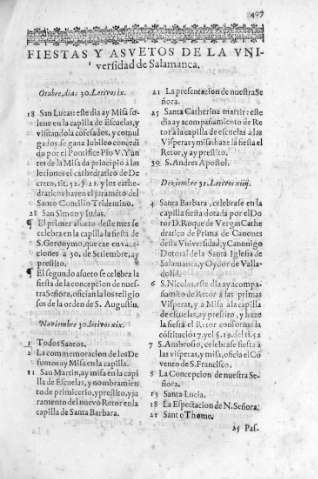 497
FIESTAS Y ASVETOS DE LA VNI-
versidad de Salamanca.
Octubre, dias 30. Lectivos ix.
18 San Lucas: este dia ay Misa so-
lene en la capilla de Escuelas, y
visitandola cõfesados, y comul
gados se gana Iubileo concedi
do por el Pontifice Pio V. Y an
tes de la Misa da principio a las
leciones el cathedratico de De
creto, tit. 52. §. 21. y los cathe-
draticos hazen el juramẽto del
Santo Concilio Tridentino.
28 San Simon y Iudas.
¶ El primer asueto deste mes se
celebra en la capilla la fiesta de
S. Geronymo, que cae en vaca-
ciones a 30. de Setiembre, ay
prestito.
¶ El segundo asueto se celebra la
fiesta de la concepcion de nues-
tra Señora, ofician los religio
sos de la orden de S. Augustin.
Noviembre 30. Lectivos xix.
1 Todos Santos.
2 La commemoracion de los De
funtos ay Misa en la capilla.
11 San Martin, ay misa en la capi
lla de Escuelas, y nombramien
to de primicerio, y prestito, y ju
ramento del nuevo Retor en la
capilla de Santa Barbara.
21 La presentacion de nuestra Se
ñora.
25 Santa Catherina martir: este
dia ay acompañamiento de Re
tor a la capilla de escuelas a las
Visperas y misa haze la fiesta el
Retor, y ay prestito.
30. S. Andres Apostol.
Deziembre 31. Lectivos xiiij.
4 Santa Barbara, celebrase en la
capilla fiesta dotada por el Do
tor D. Roque de Vargas Cathe
dratico de Prima de Canones
desta Vniversidad, y Canonigo
Dotoral de la Santa Iglesia de
Salamanca, y Oydor de Valla-
dolid.
6 S. Nicolas, este dia ay acompa-
ñamiento de Retor a las primas
Visperas, y a Misa a la capilla
de escuelas, ay prestito, y haze
la fiesta el Retor conforme la
7 S. Ambrosio, celebrase fiesta a
las visperas, y misa, oficia el Co
vento de S. Francisco.
8 La Concepcion de nuestra Se-
ñora.
13 Santa Lucia.
18 La Espectacion de N. Señora.
21 Santo Thome.
25 Pas.